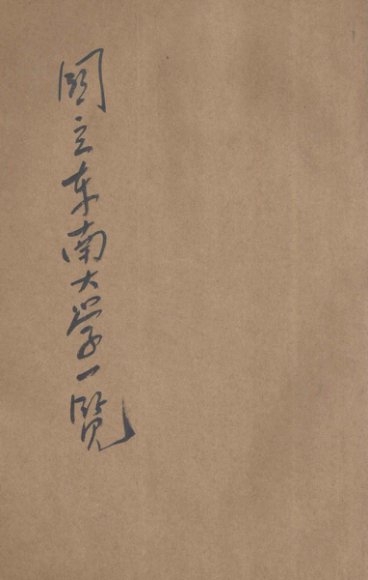 国立东南大学一覽